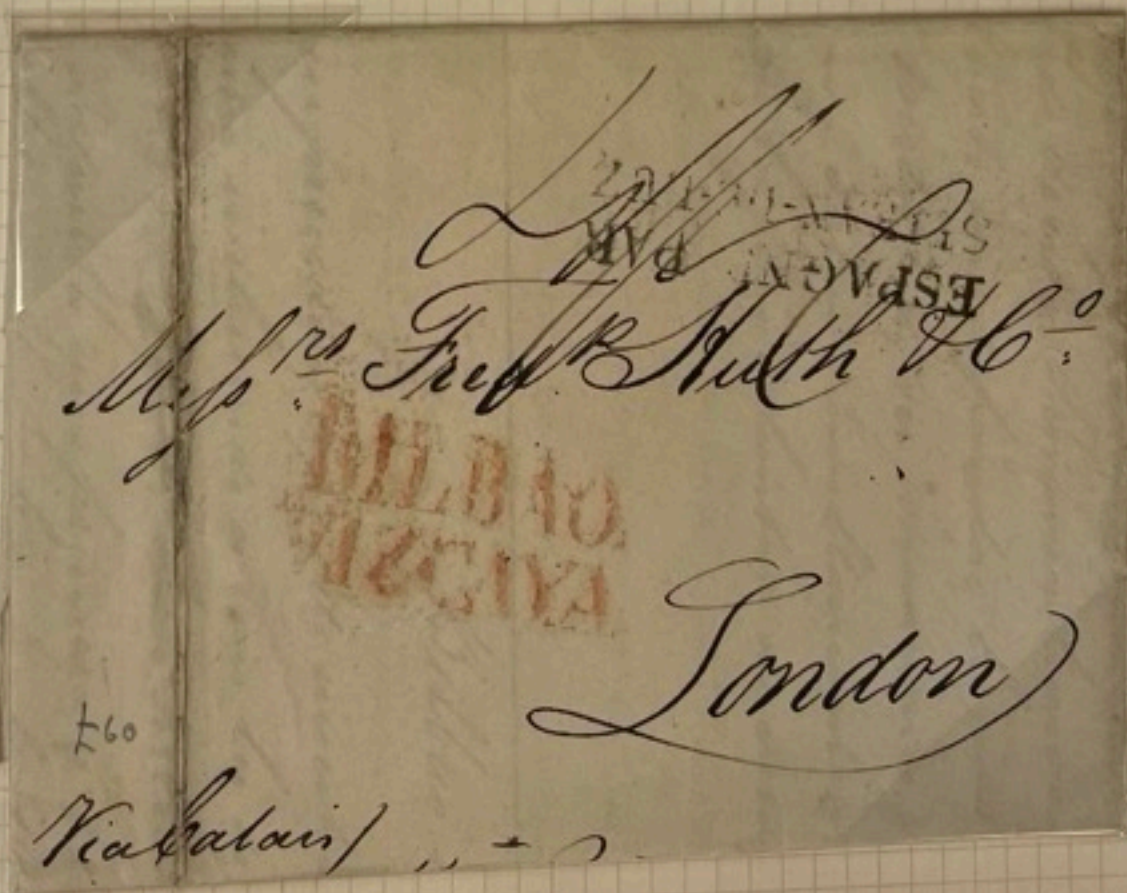 ESPAGNE PAR
ST. JEAN-DE-LUZ
Mess.rs Fred.k Huth & C.o
BILBAO
VISCAYA
London
£60
Via Calais